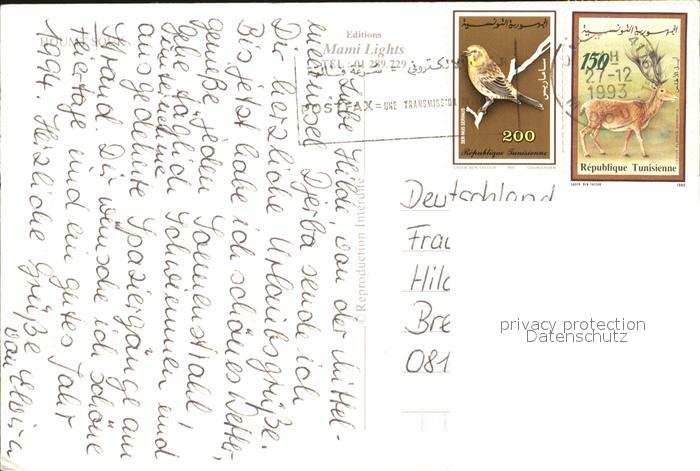 Liebe Hilde von der Mittel-
meerinsel Djerba sende ich
Dir herzliche Urlaubsgrüße.
Bis jetzt habe ich schönes Wetter,
genieße jeden Sonnenstrahl,
gehe täglich Schwimmen und
unternehme
ausgedehnte Spaziergänge am
Strand. Dir wünsche ich schöne
Feiertage und ein gutes Jahr
1994. Herzliche Grüße
von Elvira
Editions
Mami Lights
TEL : 01 289.729
Reproduction Interdite
POSTFAX = UNE TRANSMISSION
الجمهورية التونسية
200
République Tunisienne
الجمهورية التونسية
150
27-12
1993
République Tunisienne
Deutschland
Frau
Hild
Bre
081
privacy protection
Datenschutz